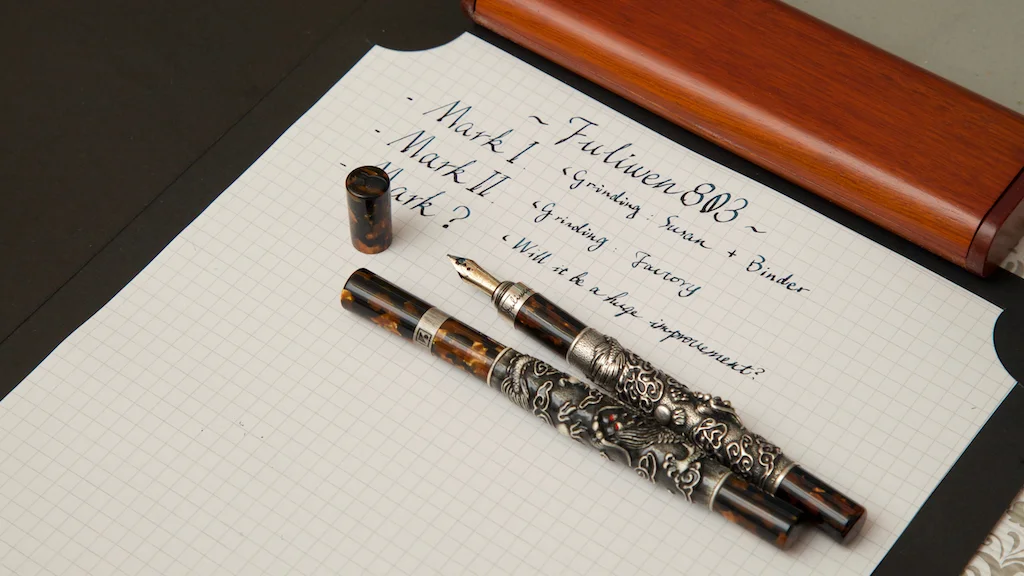 ~ Fuliwen 803 ~
- Mark I
<Grinding: Susan + Binder
- Mark II
<Grinding: Factory
- Mark ?
<Will it be a huge improvement?